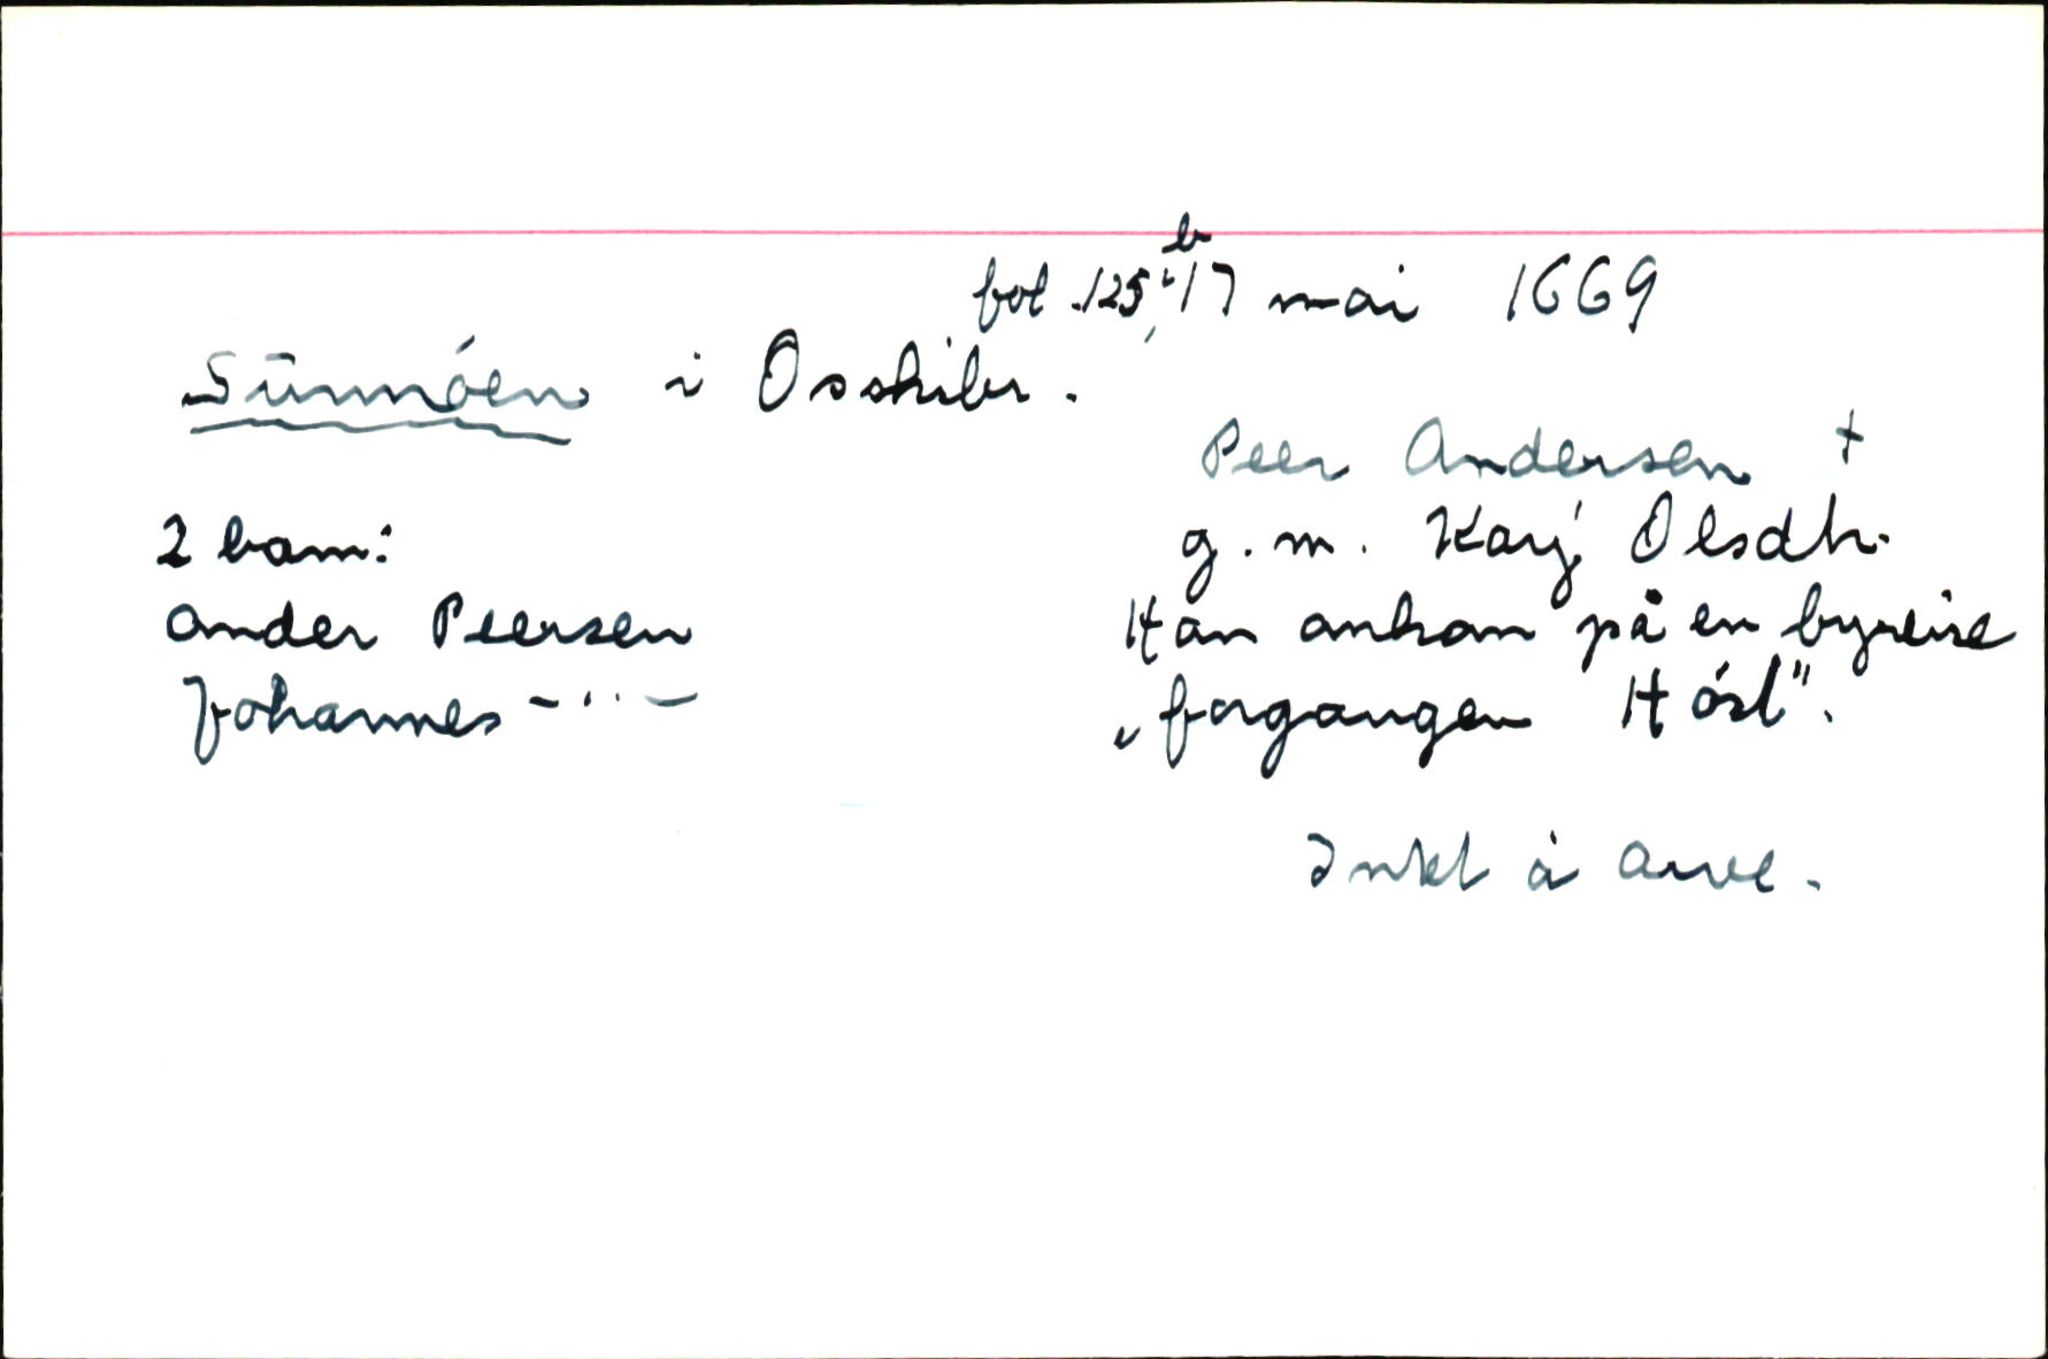 fol. 125 b, 17 mai 1669
Sūnmóen i Osskibr.
Peer Andersen †
2 barn:
g. m. Karÿ Olsdtr.
Ander Peersen
Han omkom på en byreise
Johannes - " -
„forgangen Höst".
Intet å arve.